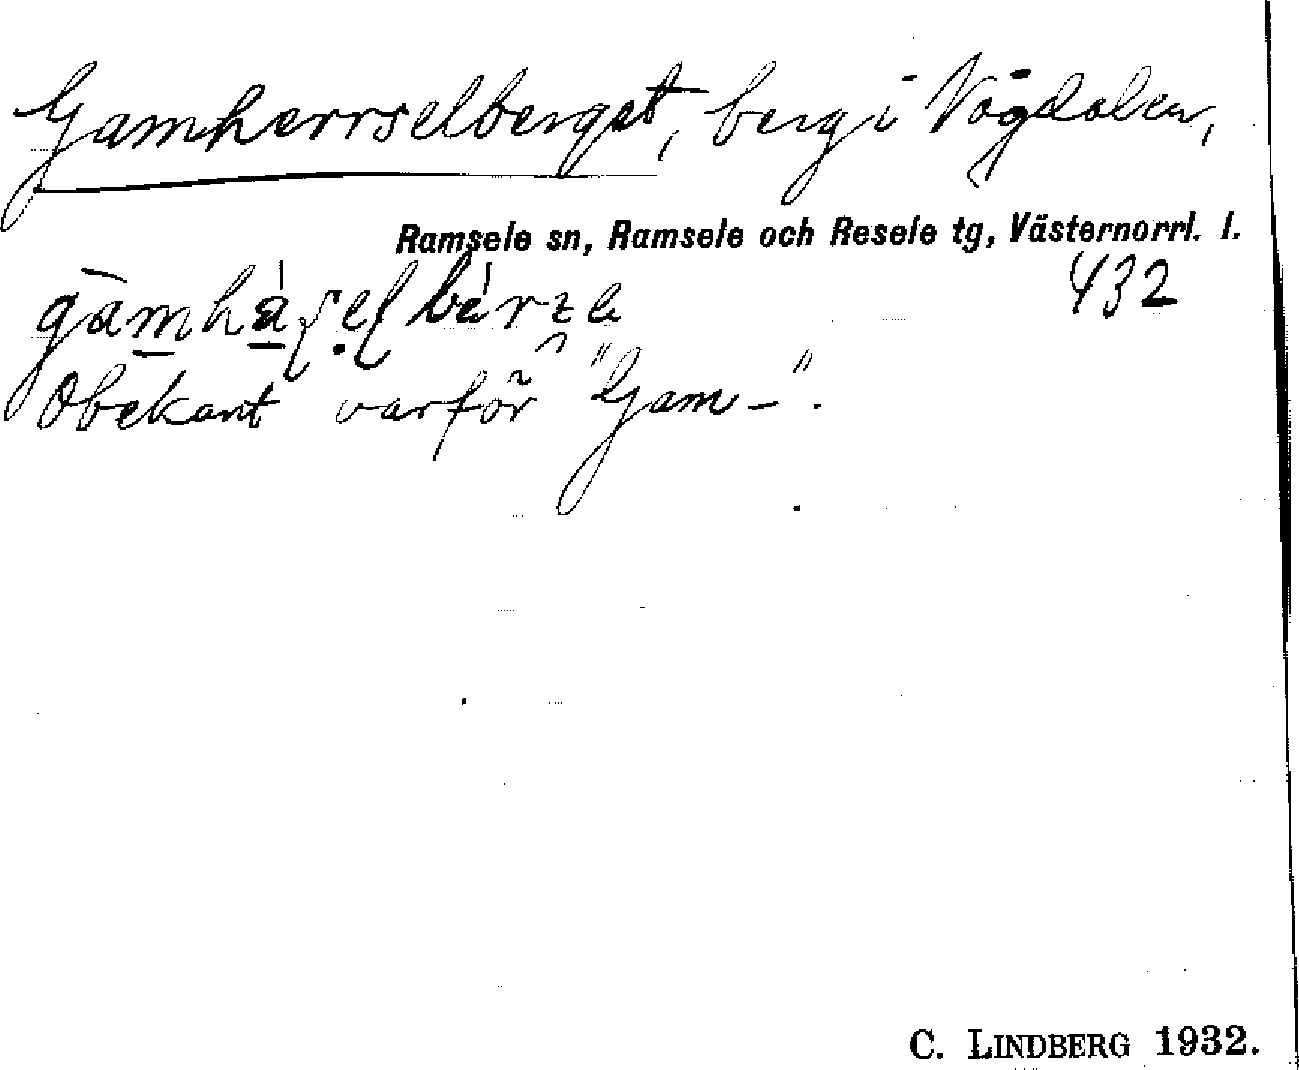 Gamherrselberget, berg i Vägdalen,
Ramsele sn, Ramsele och Resele tg, Västernorrl. l.
432
Obekant varför "Gam-".
C. LINDBERG 1932.